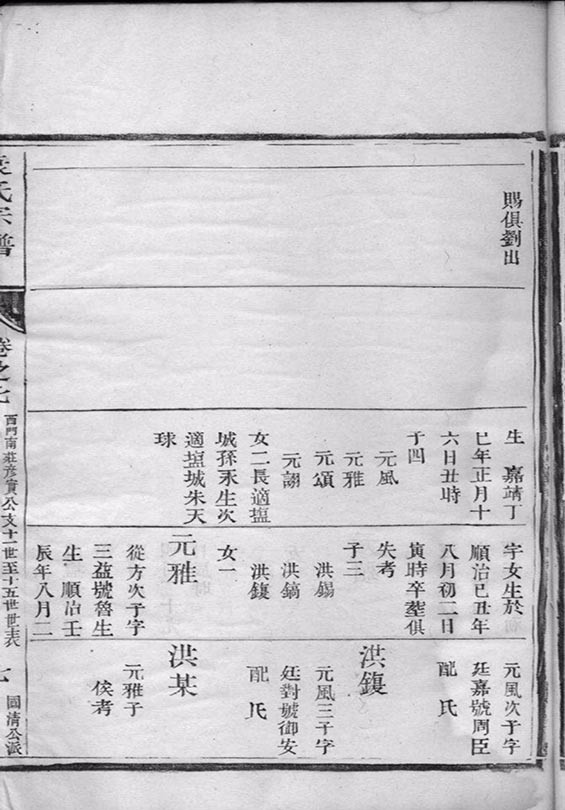 賜俱劉出
生 嘉靖丁
巳年正月十
六日丑時
子四
元風
元雅
元頌
元詡
女二長適塩
城孫永生次
適塩城朱天
球
字女生於
順治己丑年
八月初二日
寅時卒塟俱
失考
子三
洪錫
洪鎬
洪鍑
女一
元雅
從方次子字
三益號魯生
生 順治壬
辰年八月二
元風次子字
廷嘉號周臣
配 氏
洪鍑
元風三子字
廷對號御安
配 氏
洪某
元雅子
俟考
袁氏宗譜
卷之七
西門南莊彦賓公支十一世至十五世世表
七
國清公派